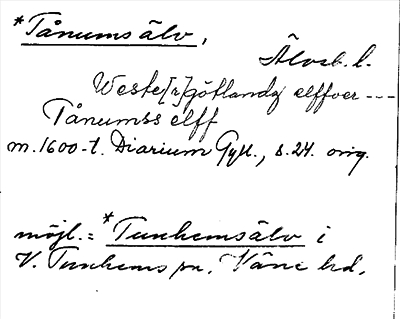 *Tånumsälv,
Älvsb. l.
Weste[r]götlandz elffver ---
Tånumss elff
m. 1600-t. Diarium Gyll., s. 24. orig.
möjl. = *Tunhemsälv i
V. Tunhems sn, Väne hd.